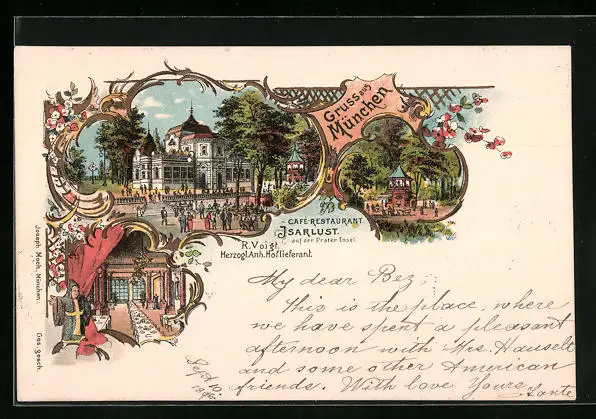 Gruss aus
München
CAFÉ-RESTAURANT
ISARLUST.
auf der Prater-Insel
R. Voigt.
Herzogl. Anh. Hoflieferant.
Joseph Moch, München.
Ges. gesch.
My dear Bez;
This is the place, where
we have spent a pleasant
afternoon with Mrs. Hauselt
and some other American
friends. With love Yours,
Tante
Sept 10.
1896.